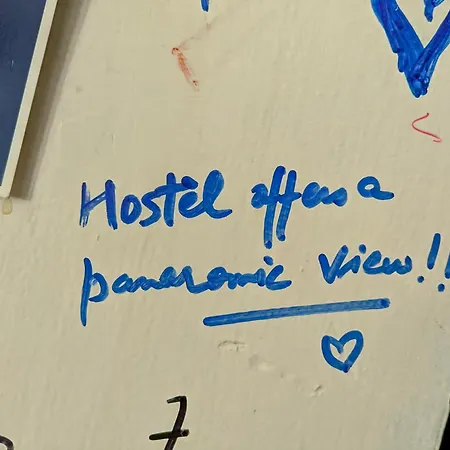 Hostel offers a
panaromic view!!
7